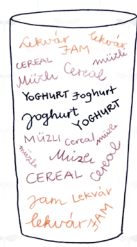 Lekvár lekvár
JAM
CEREAL müzli
Müzli Cereal
YOGHURT Joghurt
Joghurt YOGHURT
MÜZLI cereal müzli
müzli Müzli
CEREAL cereal
Jam Lekvár
lekvár JAM